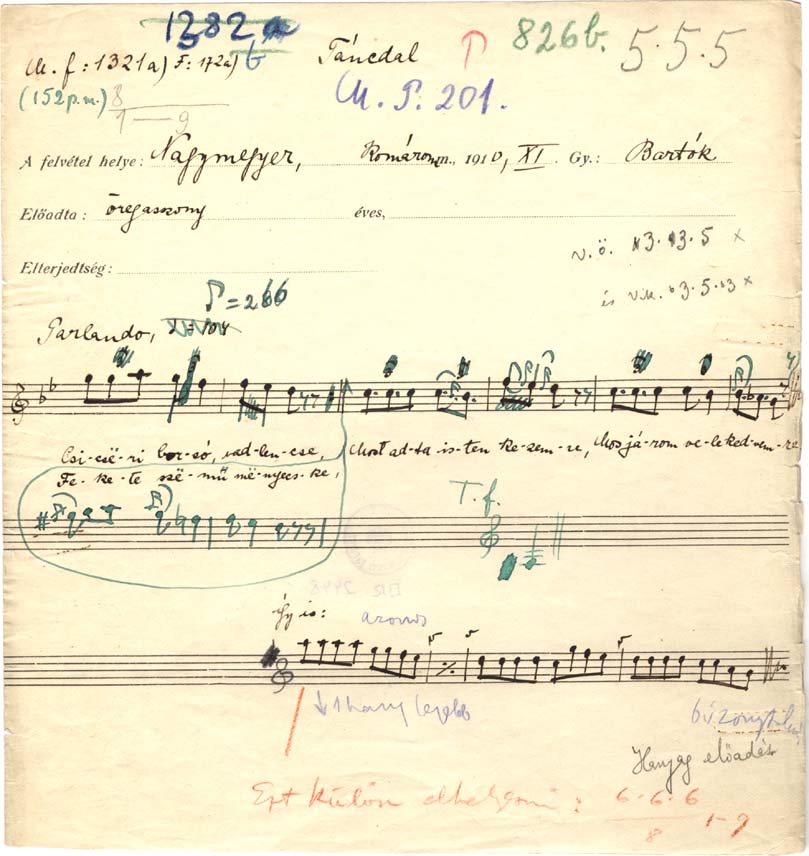 1382 a
b
Táncdal
826b.
5.5.5
M. f: 1321a) F: 172a)
(152 p.m.)
8
1—9
M. P. 201.
A felvétel helye: Nagymegyer, Komárom m., 1910, XI. Gy.: Bartók
Előadta: öregasszony éves,
v.ö. 
Elterjedtség:
♪=266
Parlando,
Csi-csë-ri bor-só, vad-len-cse, Most ad-ta is-ten ke-zem-re, Mos já-rom ve-le ked-vem-re
Fe-ke-te szë-mű më-nyecs-ke,
T. f.
Így is: azonos
5 5 5
1 hang lejebb
Hanyag előadás
Ezt külön elhelyezni: 6.6.6
8 1-9